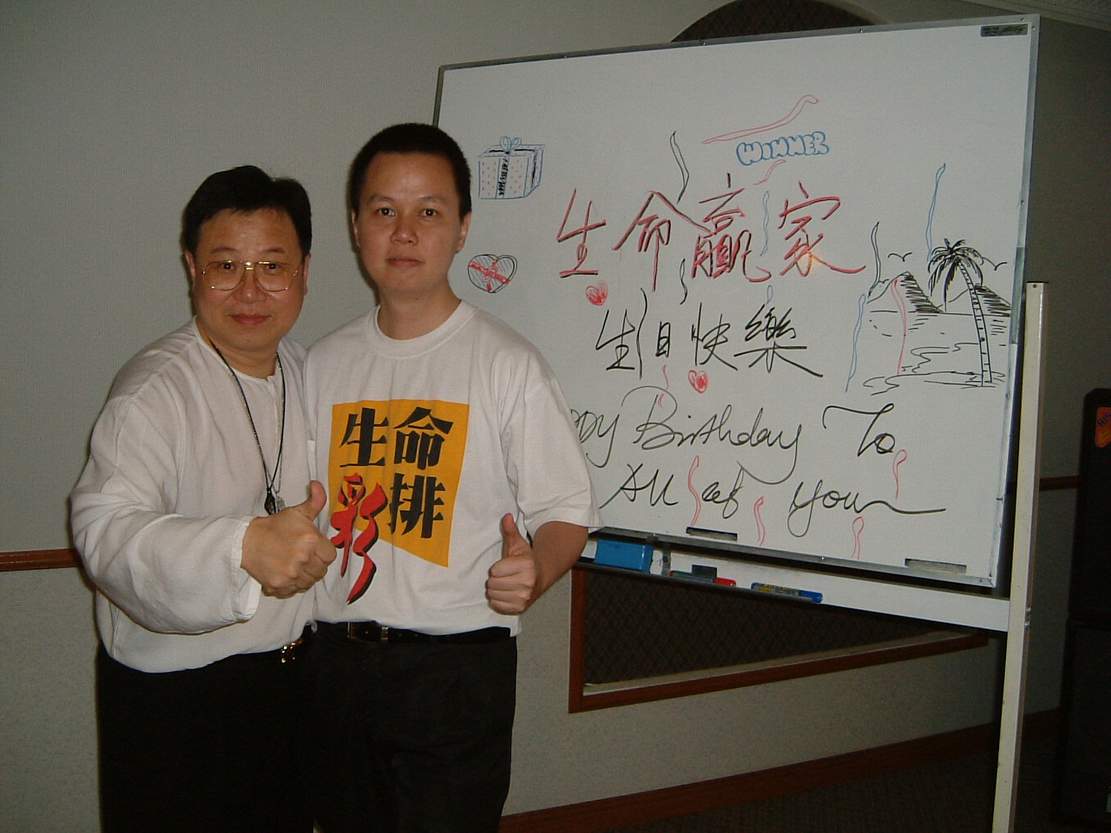 WINNER
生命贏家
生日快樂
ppy Birthday To
All of you
生命
彩排